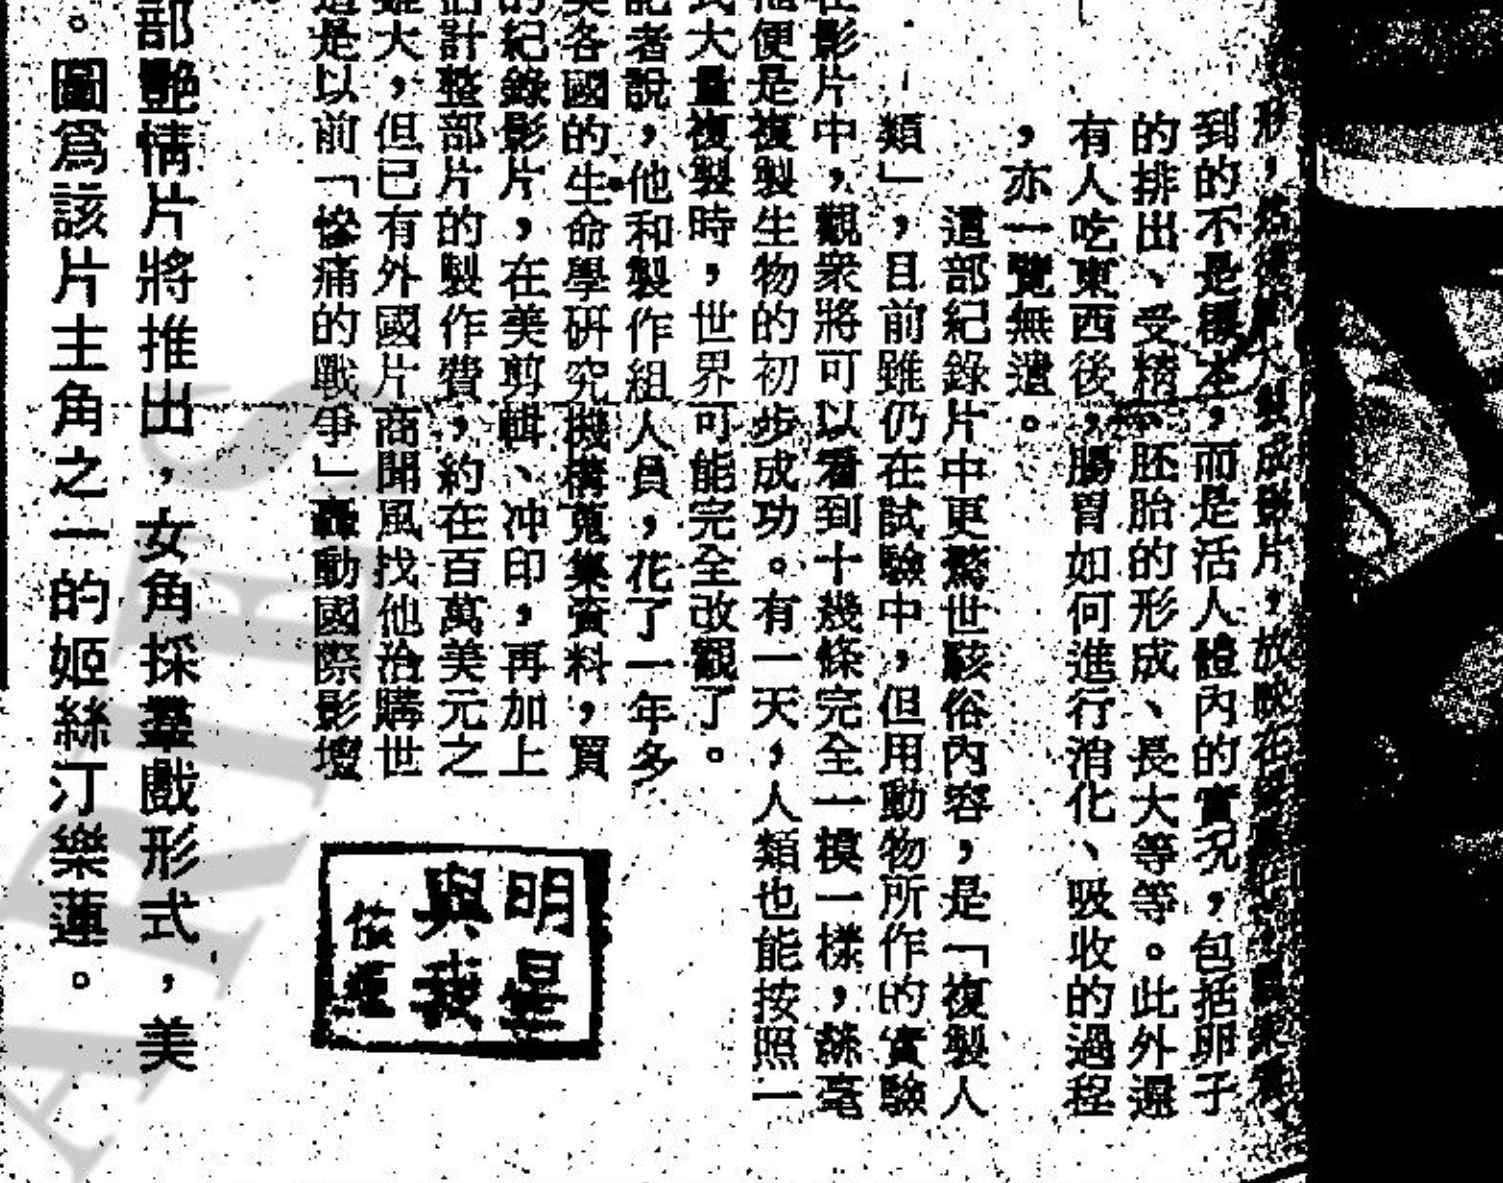 到的不是標本,而是活人體內的實況,包括卵子
的排出、受精、胚胎的形成、長大等等。此外還
有人吃東西後,腸胃如何進行消化、吸收的過程
,亦一覽無遺。
這部紀錄片中更驚世駭俗內容,是「複製人
類」,目前雖仍在試驗中,但用動物所作的實驗
在影片中,觀衆將可以看到十幾條完全一模一樣,絲毫
便是複製生物的初步成功。有一天,人類也能按照一
式大量複製時,世界可能完全改觀了。
記者說,他和製作組人員,花了一年多
美各國的生命學研究機構蒐集資料,買
的紀錄影片,在美剪輯、冲印,再加上
估計整部片的製作費,約在百萬美元之
雖大,但已有外國片商聞風找他洽購世
這是以前「慘痛的戰爭」轟動國際影壇
明星
與我
部艷情片將推出,女角採羣戲形式,美
。圖爲該片主角之一的姬絲汀樂蓮。
ARIES